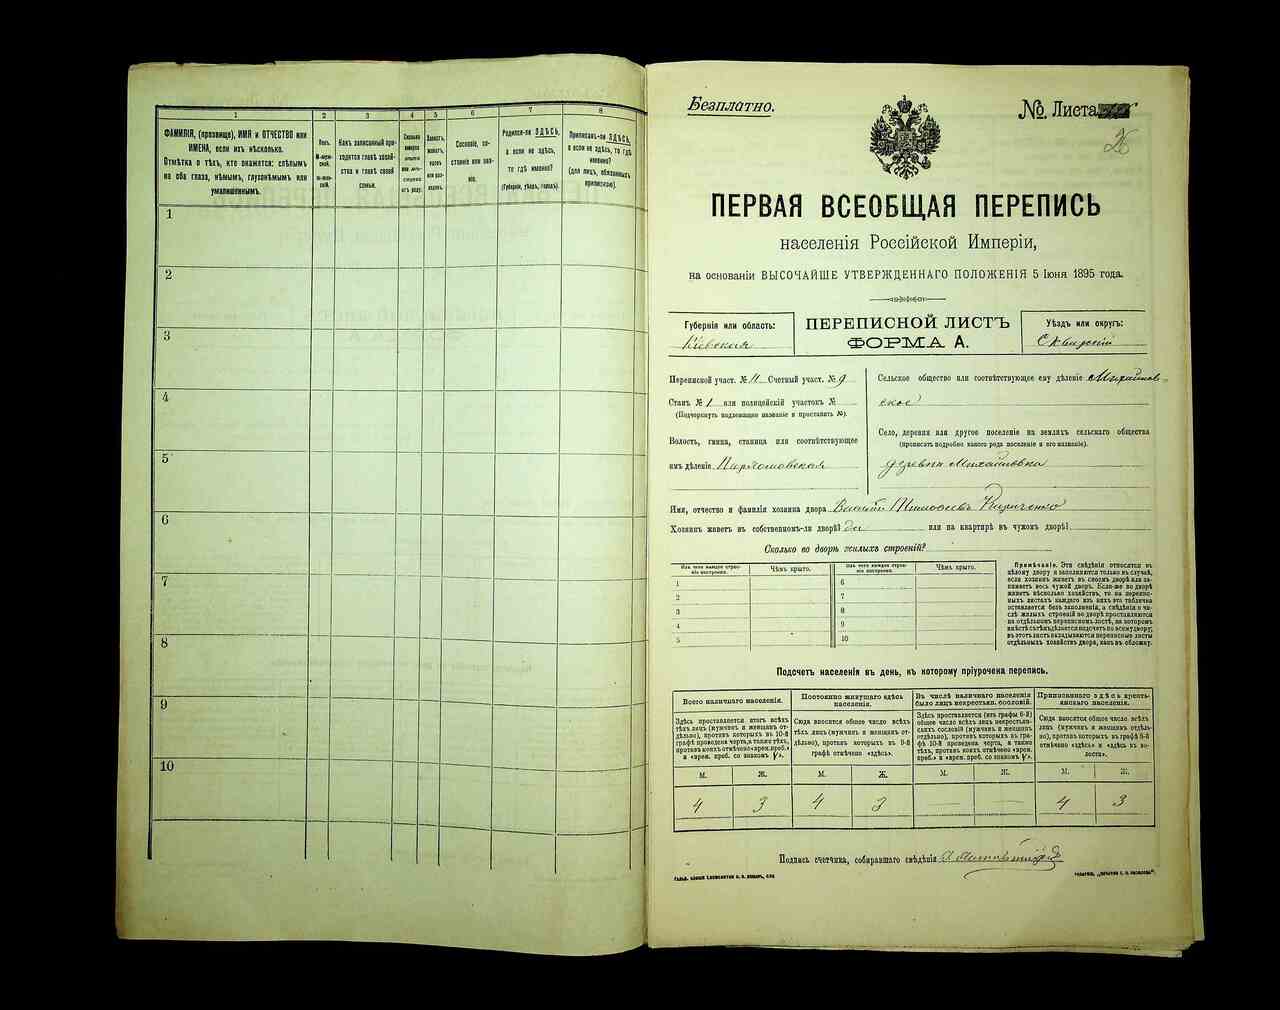 1
2
3
4
5
6
7
8
ФАМИЛІЯ, (прозвище), ИМЯ и ОТЧЕСТВО или
ИМЕНА, если ихъ нѣсколько.
Отмѣтка о тѣхъ, кто окажется: слѣпымъ
на оба глаза, нѣмымъ, глухонѣмымъ или
умалишеннымъ.
Полъ.
Какъ записанный при-
ходится главѣ хозяй-
ства и главѣ своей
семьи.
Сословіе, со-
стояніе или зва-
ніе.
Родился-ли ЗДѢСЬ,
а если не здѣсь,
то гдѣ именно?
(Губернія, уѣздъ, городъ).
Приписанъ-ли ЗДѢСЬ,
а если не здѣсь, то гдѣ
именно?
(для лицъ, обязанныхъ
припискою).
1
2
3
4
5
6
7
8
9
10
Безплатно.
№ Листа
26
ПЕРВАЯ ВСЕОБЩАЯ ПЕРЕПИСЬ
населенія Россійской Имперіи,
на основаніи ВЫСОЧАЙШЕ УТВЕРЖДЕННАГО ПОЛОЖЕНІЯ 5 Іюня 1895 года.
Губернія или область:
Кіевская
ПЕРЕПИСНОЙ ЛИСТЪ
ФОРМА А.
Уѣздъ или округъ:
Сквирскій
Переписной участ. № 11 Счетный участ. № 9
Станъ № 1 или полицейскій участокъ №
(Подчеркнуть подлежащее названіе и проставить №).
Волость, гмина, станица или соотвѣтствующее
имъ дѣленіе Пархомовская
Сельское общество или соотвѣтствующее ему дѣленіе Михайлов-
ское
Село, деревня или другое поселеніе на земляхъ сельскаго общества
(прописать подробно какого рода поселеніе и его названіе).
деревня Михайловка
Имя, отчество и фамилія хозяина двора Василій Тимофеевъ Кириченко
Хозяинъ живетъ въ собственномъ-ли дворѣ? да или на квартирѣ въ чужомъ дворѣ?
Сколько во дворѣ жилыхъ строеній?
Изъ чего каждое строе-
ніе построено.
Чѣмъ крыто.
Изъ чего каждое строе-
ніе построено.
Чѣмъ крыто.
1
2
3
4
5
6
7
8
9
10
Примѣчаніе. Эти свѣдѣнія относятся къ
цѣлому двору и заполняются только въ случаѣ,
если хозяинъ живетъ въ своемъ дворѣ или за-
нимаетъ весь чужой дворъ. Если-же во дворѣ
живетъ нѣсколько хозяйствъ, то на перепис-
ныхъ листахъ каждаго изъ нихъ эта табличка
оставляется безъ заполненія, а свѣдѣнія о чи-
слѣ жилыхъ строеній во дворѣ проставляются
на отдѣльномъ переписномъ листѣ, на которомъ
вмѣстѣ съ тѣмъ дѣлается подсчетъ по всему двору;
въ этотъ листъ вкладываются переписные листы
отдѣльныхъ хозяйствъ двора, какъ въ обложку.
Подсчетъ населенія въ день, къ которому пріурочена перепись.
Всего наличнаго населенія.
Здѣсь проставляется итогъ всѣхъ
лицъ (мужчинъ и женщинъ от-
дѣльно), противъ которыхъ въ 10-й
графѣ проведена черта, а также тѣхъ,
противъ коихъ отмѣчено «врем. преб.»
и «врем. преб. со знакомъ V».
Постоянно живущаго здѣсь
населенія.
Сюда вносится общее число всѣхъ
тѣхъ лицъ (мужчинъ и женщинъ от-
дѣльно), противъ которыхъ въ 9-й
графѣ отмѣчено «здѣсь».
Въ числѣ наличнаго населенія
было лицъ некрестьян. сословій.
Здѣсь проставляется (изъ графы 6-й)
общее число всѣхъ лицъ некрестьян-
скихъ сословій (мужчинъ и женщинъ
отдѣльно), противъ которыхъ въ гра-
фѣ 10-й проведена черта, а также
тѣхъ, противъ коихъ отмѣчено «врем.
преб.» и «врем. преб. со знакомъ V».
Приписаннаго здѣсь кресть-
янскаго населенія.
Сюда вносится общее число всѣхъ
лицъ (мужчинъ и женщинъ отдѣль-
но), противъ которыхъ въ графѣ 8-й
отмѣчено «здѣсь» и «здѣсь въ во-
лости».
М. Ж. М. Ж. М. Ж. М. Ж.
4 3 4 3 — — 4 3
Подпись счетчика, собиравшаго свѣдѣнія